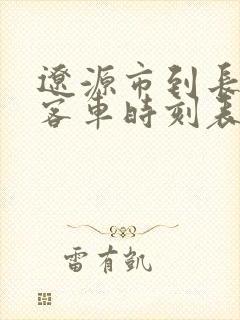 遼源市到長
客車時刻表
雷有凱